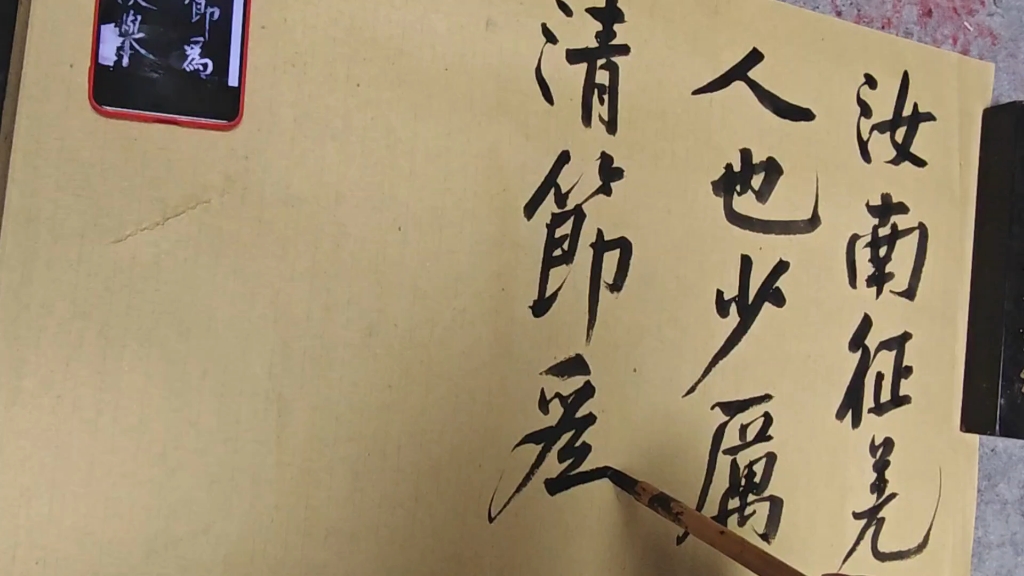 汝南征羌
人也少厲
清節
節為
舉